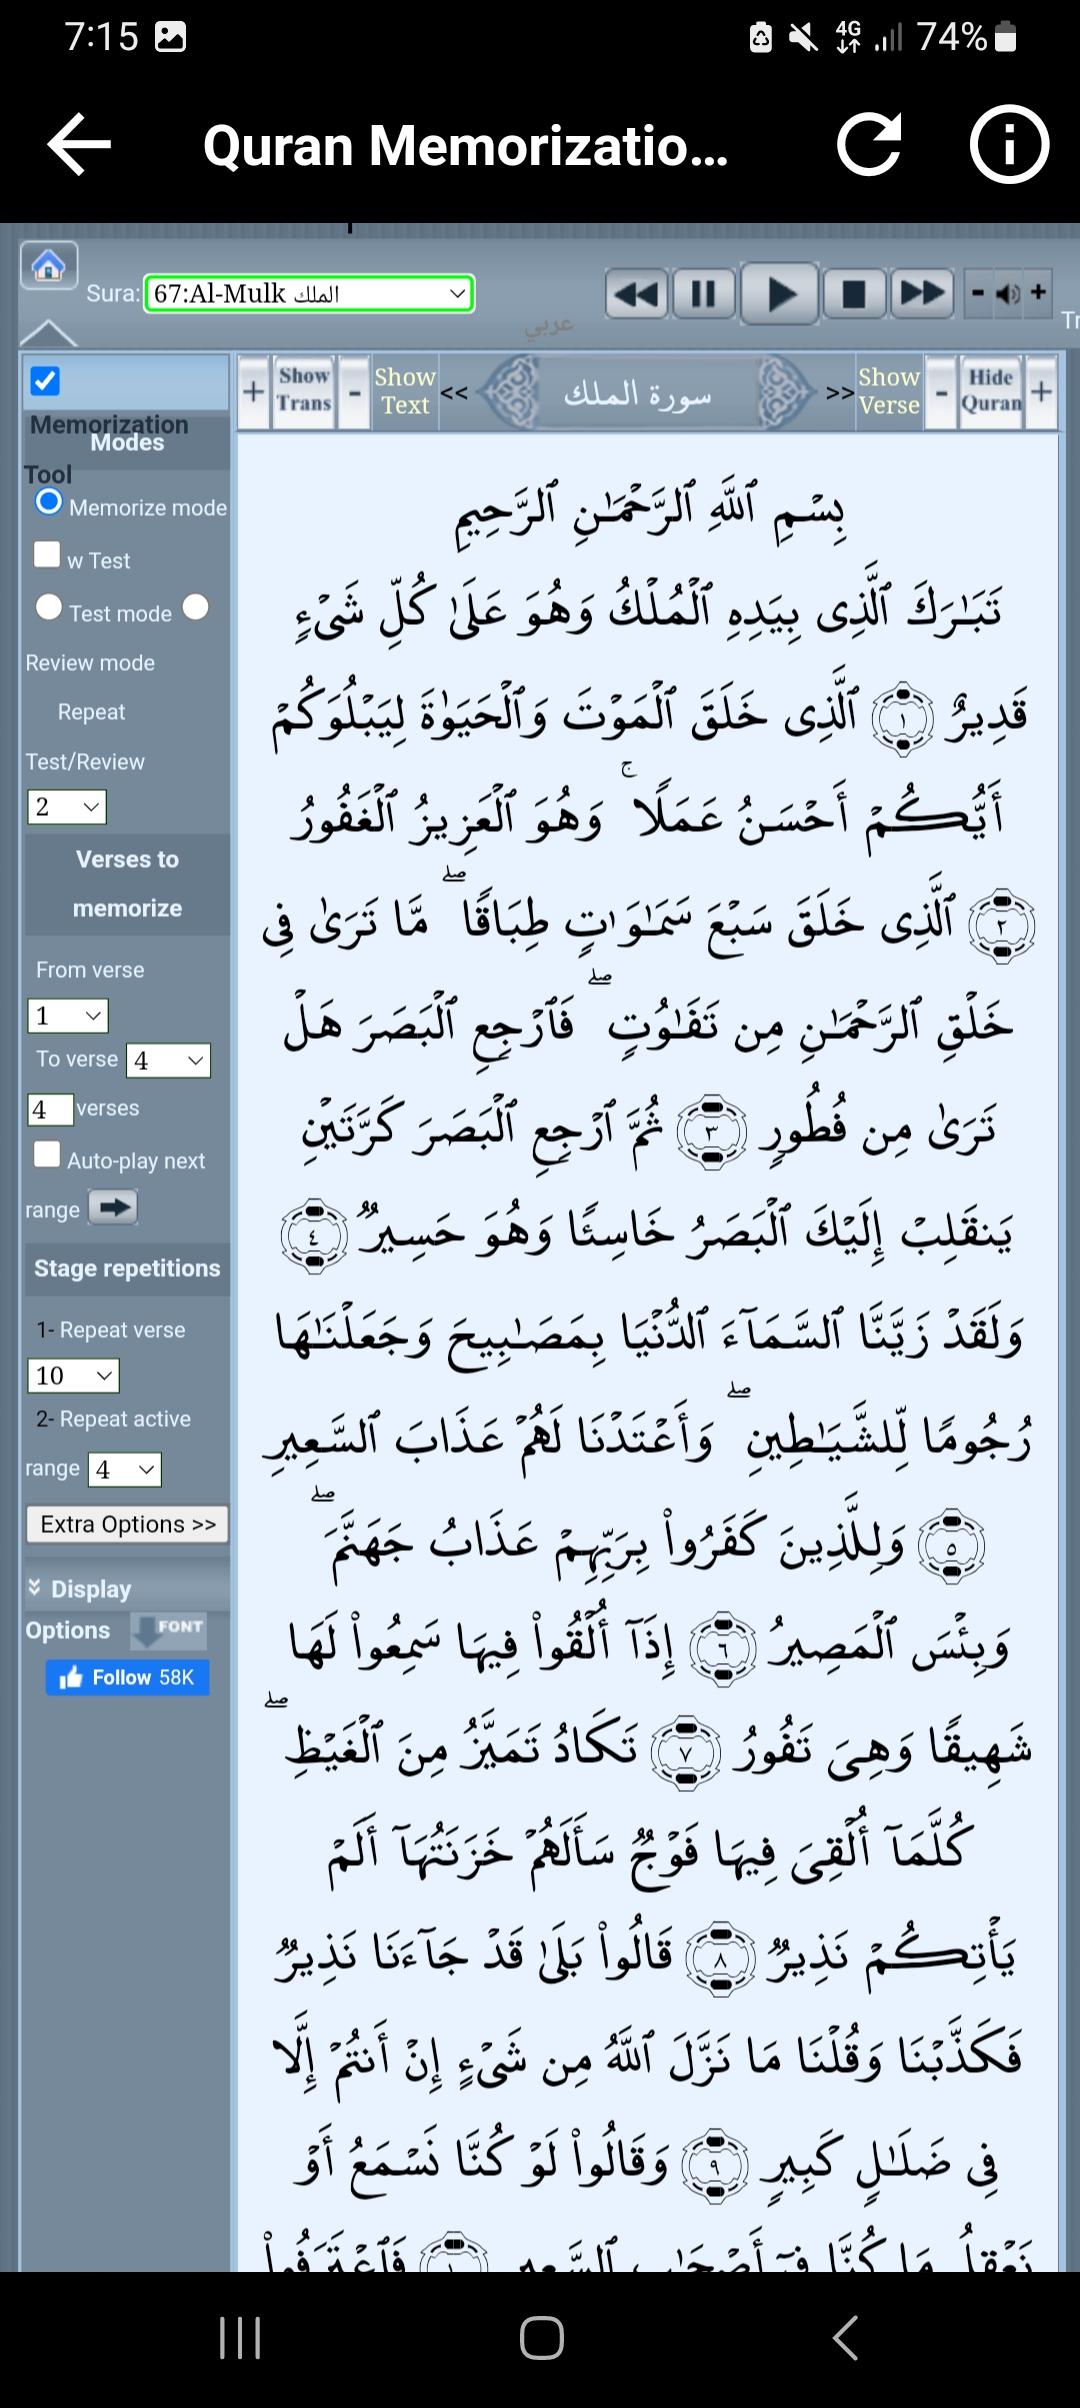 7:15
4G
74%
Quran Memorizatio...
Sura: 67:Al-Mulk الملك
عربي
Tr
+ Show Trans - Show Text << سورة الملك >> Show Verse - Hide Quran +
Memorization
Modes
Tool
Memorize mode
w Test
Test mode
Review mode
Repeat
Test/Review
2
Verses to
memorize
From verse
1
To verse 4
4 verses
Auto-play next
range
Stage repetitions
1- Repeat verse
10
2- Repeat active
range 4
Extra Options >>
Display
Options FONT
Follow 58K
بِسْمِ ٱللَّهِ ٱلرَّحْمَـٰنِ ٱلرَّحِيمِ
تَبَـٰرَكَ ٱلَّذِى بِيَدِهِ ٱلْمُلْكُ وَهُوَ عَلَىٰ كُلِّ شَىْءٍ
قَدِيرٌ ١ ٱلَّذِى خَلَقَ ٱلْمَوْتَ وَٱلْحَيَوٰةَ لِيَبْلُوَكُمْ
أَيُّكُمْ أَحْسَنُ عَمَلًا ۚ وَهُوَ ٱلْعَزِيزُ ٱلْغَفُورُ
٢ ٱلَّذِى خَلَقَ سَبْعَ سَمَـٰوَٰتٍ طِبَاقًا ۖ مَّا تَرَىٰ فِى
خَلْقِ ٱلرَّحْمَـٰنِ مِن تَفَـٰوُتٍ ۖ فَٱرْجِعِ ٱلْبَصَرَ هَلْ
تَرَىٰ مِن فُطُورٍ ٣ ثُمَّ ٱرْجِعِ ٱلْبَصَرَ كَرَّتَيْنِ
يَنقَلِبْ إِلَيْكَ ٱلْبَصَرُ خَاسِئًا وَهُوَ حَسِيرٌ ٤
وَلَقَدْ زَيَّنَّا ٱلسَّمَآءَ ٱلدُّنْيَا بِمَصَـٰبِيحَ وَجَعَلْنَـٰهَا
رُجُومًا لِّلشَّيَـٰطِينِ ۖ وَأَعْتَدْنَا لَهُمْ عَذَابَ ٱلسَّعِيرِ
٥ وَلِلَّذِينَ كَفَرُوا۟ بِرَبِّهِمْ عَذَابُ جَهَنَّمَ ۖ
وَبِئْسَ ٱلْمَصِيرُ ٦ إِذَآ أُلْقُوا۟ فِيهَا سَمِعُوا۟ لَهَا
شَهِيقًا وَهِىَ تَفُورُ ٧ تَكَادُ تَمَيَّزُ مِنَ ٱلْغَيْظِ ۖ
كُلَّمَآ أُلْقِىَ فِيهَا فَوْجٌ سَأَلَهُمْ خَزَنَتُهَآ أَلَمْ
يَأْتِكُمْ نَذِيرٌ ٨ قَالُوا۟ بَلَىٰ قَدْ جَآءَنَا نَذِيرٌ
فَكَذَّبْنَا وَقُلْنَا مَا نَزَّلَ ٱللَّهُ مِن شَىْءٍ إِنْ أَنتُمْ إِلَّا
فِى ضَلَـٰلٍ كَبِيرٍ ٩ وَقَالُوا۟ لَوْ كُنَّا نَسْمَعُ أَوْ
نَعْقِلُ مَا كُنَّا فِىٓ أَصْحَـٰبِ ٱلسَّعِيرِ ١٠ فَٱعْتَرَفُوا۟